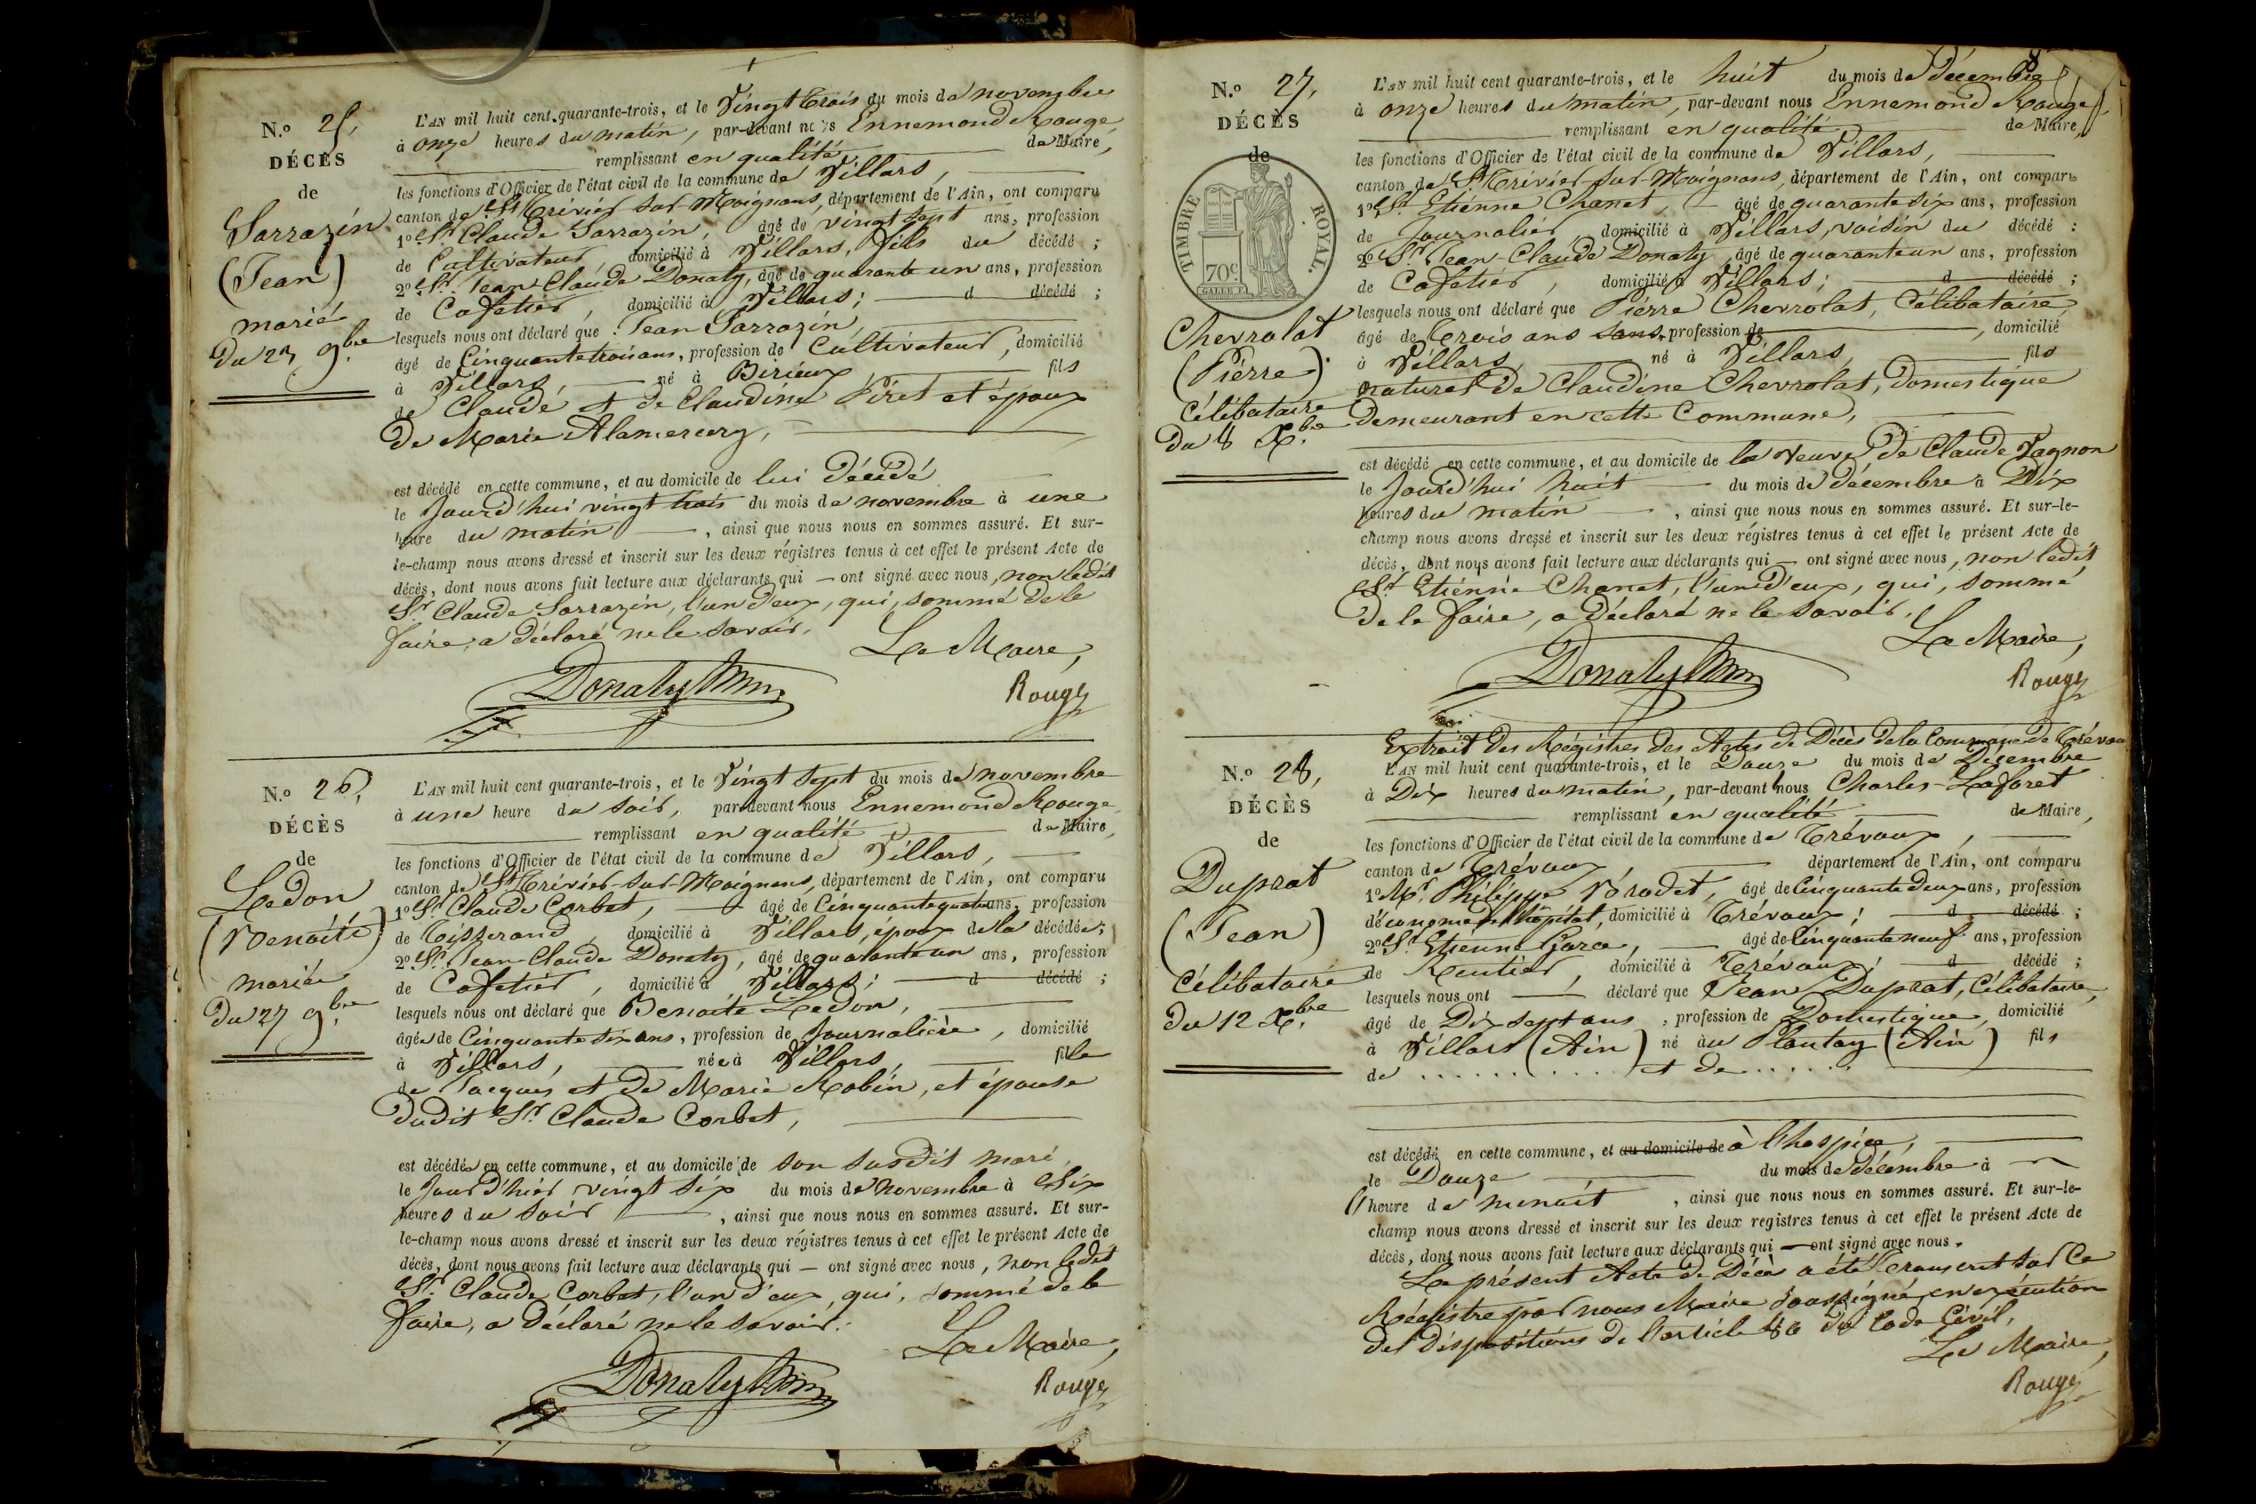 N.º 25,
DÉCÈS
de
Sarrazin
(Jean)
marié
Du 23 9.bre
L'AN mil huit cent quarante-trois, et le Vingt trois du mois de novembre
à onze heures du matin, par-devant nous Ennemond Rouge
remplissant en qualité de Maire,
les fonctions d'Officier de l'état civil de la commune de Villars,
canton de St Trivier sur Moignans, département de l'Ain, ont comparu
1º Sr Claude Sarrazin, âgé de vingt sept ans, profession
de Cultivateur, domicilié à Villars, fils du décédé ;
2º Sr Jean Claude Donaty, âgé de quarante un ans, profession
de Cafetier, domicilié à Villars ; d décédé ;
lesquels nous ont déclaré que Jean Sarrazin,
âgé de Cinquante trois ans, profession de Cultivateur, domicilié
à Villars, né à Birieux, fils
de Claude et de Claudine Piret et époux
de Marie Alamercery,
est décédé en cette commune, et au domicile de lui Décédé
le Jourd'hui vingt trois du mois de novembre à une
heure du matin, ainsi que nous nous en sommes assuré. Et sur-
le-champ nous avons dressé et inscrit sur les deux régistres tenus à cet effet le présent Acte de
décès, dont nous avons fait lecture aux déclarants qui — ont signé avec nous, non ledit
Sr Claude Sarrazin, l'un d'eux, qui, sommé de le
faire, a déclaré ne le savoir.
Le Maire,
Donaty
Rouge
N.º 26,
DÉCÈS
de
Ledon
(Benoite)
mariée
Du 27 9.bre
L'AN mil huit cent quarante-trois, et le Vingt sept du mois de novembre
à une heure du soir, par-devant nous Ennemond Rouge
remplissant en qualité de Maire,
les fonctions d'Officier de l'état civil de la commune de Villars,
canton de St Trivier-sur-Moignans, département de l'Ain, ont comparu
1º Sr Claude Corbet, âgé de Cinquante quatre ans, profession
de Tisserand, domicilié à Villars, époux de la décédée ;
2º Sr Jean Claude Donaty, âgé de quarante un ans, profession
de Cafetier, domicilié à Villars ; d décédé ;
lesquels nous ont déclaré que Benoite Ledon,
âgée de Cinquante six ans, profession de Journalière, domicilié
à Villars, née à Villars, fille
de Jacques et de Marie Robin, et épouse
dudit Sr Claude Corbet,
est décédée en cette commune, et au domicile de son susdit mari,
le Jour d'hier vingt six du mois de novembre à Six
heures du soir, ainsi que nous nous en sommes assuré. Et sur-
le-champ nous avons dressé et inscrit sur les deux régistres tenus à cet effet le présent Acte de
décès, dont nous avons fait lecture aux déclarants qui — ont signé avec nous, non ledit
Sr Claude Corbet, l'un d'eux, qui, sommé de le
faire, a déclaré ne le savoir.
Le Maire,
Donaty
Rouge
8
N.º 27,
DÉCÈS
de
TIMBRE ROYAL.
70c.
Chevrolat
(Pierre)
Célibataire
Du 8 X.bre
L'AN mil huit cent quarante-trois, et le huit du mois de décembre
à onze heures du matin, par-devant nous Ennemond Rouge
remplissant en qualité de Maire,
les fonctions d'Officier de l'état civil de la commune de Villars,
canton de St Trivier-sur-Moignans, département de l'Ain, ont comparu
1º Sr Etienne Chanet, âgé de quarante six ans, profession
de Journalier, domicilié à Villars, voisin du décédé ;
2º Sr Jean-Claude Donaty, âgé de quarante un ans, profession
de Cafetier, domicilié à Villars ; d décédé ;
lesquels nous ont déclaré que Pierre Chevrolat, Célibataire,
âgé de trois ans sans profession de, domicilié
à Villars, né à Villars, fils
naturel de Claudine Chevrolat, Domestique
demeurant en cette Commune,
est décédé en cette commune, et au domicile de la Veuve de Claude Vagnon
le Jourd'hui huit du mois de décembre à Dix
heures du matin, ainsi que nous nous en sommes assuré. Et sur-le-
champ nous avons dressé et inscrit sur les deux régistres tenus à cet effet le présent Acte de
décès, dont nous avons fait lecture aux déclarants qui — ont signé avec nous, non ledit
Sr Etienne Chanet, l'un d'eux, qui, sommé
de le faire, a déclaré ne le savoir.
Le Maire,
Donaty
Rouge
Extrait des Régistres des Actes de Décès de la Commune de Trévoux
N.º 28,
DÉCÈS
de
Duprat
(Jean)
Célibataire
Du 12 X.bre
L'AN mil huit cent quarante-trois, et le Douze du mois de Décembre
à Dix heures du matin, par-devant nous Charles Laforet
remplissant en qualité de Maire,
les fonctions d'Officier de l'état civil de la commune de Trévoux,
canton de Trévoux département de l'Ain, ont comparu
1º Mr Philippe Vérodet, âgé de Cinquante deux ans, profession
d'économe de l'hôpital, domicilié à Trévoux ; d décédé ;
2º Sr Etienne Gara, âgé de Cinquante neuf ans, profession
de Rentier, domicilié à Trévoux ; d décédé ;
lesquels nous ont déclaré que Jean Duprat, Célibataire,
âgé de Dix sept ans, profession de Domestique, domicilié
à Villars (Ain) né au Plantay (Ain) fils
de . . . . . . . . . . . et de . . . . . .
est décédé en cette commune, et au domicile de à l'hospice,
le Douze du mois de décembre à
l'heure de minuit, ainsi que nous nous en sommes assuré. Et sur-le-
champ nous avons dressé et inscrit sur les deux registres tenus à cet effet le présent Acte de
décès, dont nous avons fait lecture aux déclarants qui — ont signé avec nous.
Le présent Acte de Décès a été transcrit sur ce
Régistre par nous Maire soussigné, en exécution
des dispositions de l'article 80 du Code Civil,
Le Maire,
Rouge